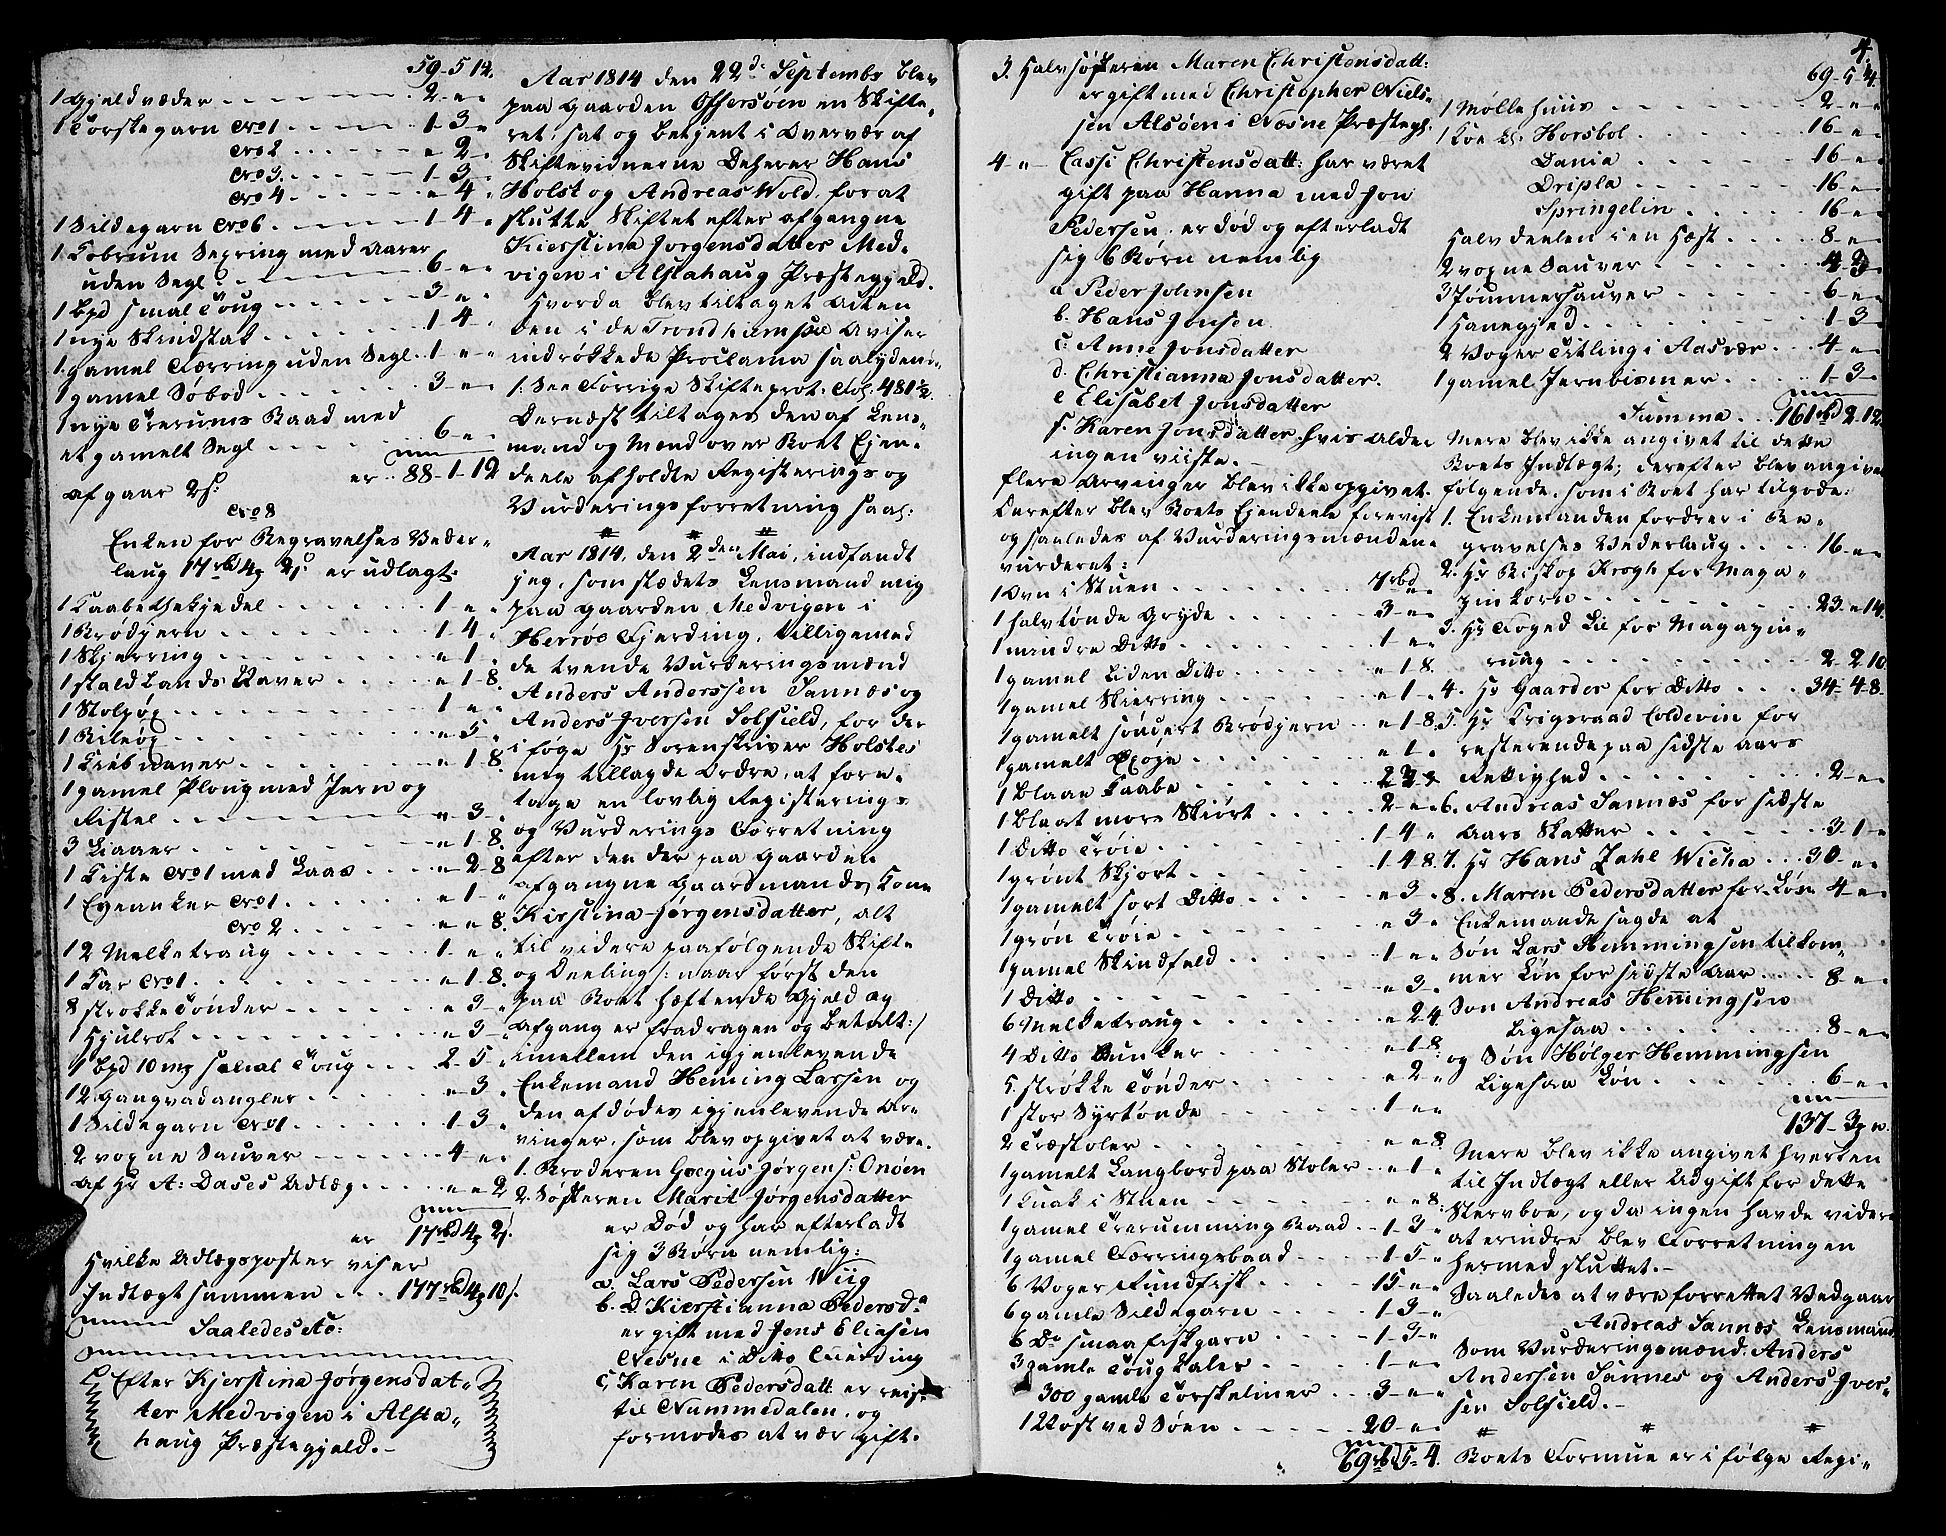 59-5-12.
1 Gjeldvæder . . . . 2-"-"
1 Torskegarn No 1 . . . . 1-3-"
No 2 . . . . "-2-"
No 3. . . . . 1-3-"
No 4 . . . . "-4-"
1 Sildegarn No 6 . . . . 1-4-"
1 Tobrum Sexring med Aarer
uden Segl . . . . 6-"-"
1 bpd smal Toug . . . . 3-"-"
1 nye Skindstak . . . . 1-4-"
1 gamel Færring uden Segl . 1-"-"
1 gamel Søbod . . . . 3-"-"
1 nye Trerums Baad med
et gamelt Segl . . . . 6-"-"
er . . 88-1-12
afgaar 2 s:
No 8
Enken for Begravelses Veder-
laug 17 rbd 4 2 s er udlagt:
1 Kaabethekjedel . . . . 1-"-"
1 Brødjern . . . . 1-4-"
1 Skjerring . . . . "-1-"
1 stald Lands Naver . . . . "-1-8
1 Stolpøx . . . . 1-"-"
1 Bileøx . . . . "-5-"
1 Kiebnaver . . . . "-1-8
1 gamel Ploug med Jern og
Ristel . . . . "-3-"
3 Liaaer . . . . "-1-8
1 Kiste No 1 med Laas . . . . "-2-8
1 Egeanker No 1 . . . . "-1-"
No 2 . . . . "-"-8
12 Melketraug . . . . 1-"-"
1 Kar No 1 . . . . "-1-8
8 strokke Tønder . . . . "-3-"
1 Hjulrok . . . . "-3-"
1 bpd 10 mk smal Toug . . . 2-5-"
12 Gangvadangler . . . . "-3-"
1 Sildegarn No 1 . . . . 1-3-"
2 voxne Sauver . . . . 4-"-"
af Hr A: Dases Udlæg . . . . "-"-2
er 17 rbd 4 2 s.
Hvilke Udlægsposter viser
Indtægt sammen . . . 177 rbd 4 10 s.
Saaledes &c:
Efter Kjerstina Jørgensdat-
ter Medvigen i Alsta-
haug Præstegjeld.-
Aar 1814 den 22de Septembr blev
paa Gaarden Offersøen en Skifte-
ret, sat og betjent i Overvær af
Skiftevidnerne Deherer Hans
Holst og Andreas Wold, for at
slutte Skiftet efter afgangne
Kierstina Jørgensdatter Med-
vigen i Alstahaug Præstegjeld.
Hvorda blev tiltaget Acten
den i de Trondhiemske Aviser
indrøkkede Proclama saalydend-
1. See Forrige Skifteprot: Fol. 481 1/2.
Dernæst tiltages den af Lens-
mand og Mend over Boet Ejen-
deele afholdte Registerings og
Vurderingsforretning saal:
# # #
Aar 1814, den 2den Mai, indfandt
jeg, som stædets Lensmand mig
paa Gaarden Medvigen i
Herrøe Fjerding, tilligemed
de tvende Vurderingsmænd
Anders Anderssen Sannæs og
Anders Iversen Solfield, for der
iføge Hr Sorenskriver Holstes
mig tillagde Ordre, at fore-
tage en lovlig Registerings
og Vurderings Forretning
efter den der paa Gaarden
afgangne Gaardmands Kone
Kirstina Jørgensdatter, alt
til videre paafølgende Skifte
og Deeling /: naar først den
paa Boet hæftende Gjeld og
Afgang er fradragen og betalt:/
imellem den igjenlevende
Enkemand Heming Larsen og
den afdødes igjenlevende Ar-
vinger, som blev opgivet at være.
1. Broderen Gregus Jørgens: Onøen
2. Søsteren Marit Jørgensdatter
er Død og har efterladt
sig 3 Børn nemlig:
a. Lars Pedersen Wiig
b. D Kierstianna Pedersda
er gift med Jens Eliasen
Nesne i Ditto Fierding
c, Karen Pedersdatt er reist
til Nummedalen, og
formodes at vær gift.
4.
3. Halvsøsteren Maren Christensdatt:
er gift med Christopher Niels-
sen Alsøen i Næsne Præstegl.
4 " Cassi Christensdatt: har været
gift paa Hanna med Jon
Pedersen, er død og efterladt
sig 6 Børn nemlig
a Peder Johnsen
b. Hans Jonsen
c: Anne Jonsdatter
d. Christianna Jonsdatter.
e Elisabet Jonsdatter
f. Karen Jonsdatter, hvis Alder
ingen viiste.-
flere Arvinger blev ikke opgivet.
Derefter blev Boets Ejendeele forevist
og saaledes af Vurderingsmændene
vurderet:
1 Ovn i Stuen . . . . 7 rbd "-"
1 halvtønde Gryde . . . . 3-"-"
1 mindre Ditto . . . . 1-"-"
1 gamel Liden Ditto . . . . "-1-8.
1 gamel Skierring . . . . "-1-"
1 gamelt søndert Brødjern . . "-1-8.
1 gamelt Øxøje . . . . "-1-"
1 blaae Kaabe . . . . 2
1 blaat mors Skiørt . . . . 2-"-"
1 Ditto Trøie . . . . 1-4-"
1 grønt Skjort . . . . 1-4-8.
1 gamelt sort Ditto . . . . "-3-"
1 grøn Trøie . . . . "-3-"
1 gamel Skindfeld . . . . 1-"-"
1 Ditto . . . . "-3-"
6 Melketraug . . . . "-2-4.
4 Ditto Bunker . . . . "-1-8
5 strøkke Tønder . . . . "-2-"
1 stor Syrtønde . . . . 1-"-"
2 Træstoler . . . . "-"-8
1 gamelt Langbord paa Stoler . . "-1-"
1 Kuak i Stuen . . . . "-"-8
1 gamel Trerumming Baad . . 1-3-"
1 gamel Færringsbaad . . . . 1-5-"
6 Voger Rundfisk . . . . 15-"-"
6 gamle Sildegarn . . . . 1-3-"
6 Do smaa fiskgarn . . . . 1-3-"
3 gamle Tougkaler . . . . 1-"-"
300 gamle Torskeliner . . . 3-"-"
1 Nost ved Søen . . . . 20-"-"
69 rbd 5-4.
69-5-4.
1 Møllehuus . . . . 2-"-"
1 Koe k: Horsbol . . . . 16-"-"
Dania . . . . 16-"-"
Dripla . . . . 16-"-"
Springelin . . . . 16-"-"
Halvdeelen i en Hæst . . . . 8-"-"
2 voxne Sauver . . . . 4-2-"
3 Tømmersauver . . . . 6-"-"
1 Hanegjed . . . . 1-3
2 Voger Titling i Aasvær . . 4-"-"
1 gamel Jernbismer . . . . 1-3-"
Summa . . 161 rbd 2-12.
Mere blev ikke angivet til dette
Boets Indtægt; derefter blev angivet
følgende, som i Boet har tilgode:
1. Enkemanden fordrer i Be-
gravelses Vederlaug . . . . 16-"-"
2. Hr Biskop Krogh for Maga-
zinkorn . . . . 23-"-14.
3. Hr Foged Lie for Magazin-
ruug . . . . 2-2-10
4. Hr Gaarder for Ditto . . . . 34-4-8.
5. Hr Krigsraad Coldevin for
resterende paa sidste Aars
Rettighed . . . . 2-"-"
6. Andreas Sannæs for sidste
Aars Skatter . . . . 3-1-"
7. Hr Hans Zahl Wicha . . . 30-"-"
8. Maren Pedersdatter for Løn 4-"-"
Enkemande sagde at
Søn Lars Hemmingsen tilkom-
mer Løn for sidste Aar . . . . 8-"-"
Søn Andreas Hemingsen
Ligesaa . . . . 8-"-"
og Søn Holger Hemmingsen
Ligesaa Løn . . . . 6-"-"
137-3-"
Mere blev ikke angivet hverken
til Indtægt eller Udgift for dette
Stervboe, og da ingen havde videre
at erindre blev Forretningen
hermed sluttet.-
Saaledes at være forrettet Vedgaar
Andreas Sannæs Lensmand
Som Vurderingsmænd: Anders
Andersen Sannes og Anders Iver-
sen Solfield.-
# # #
Boets Formue er i følge Regi-